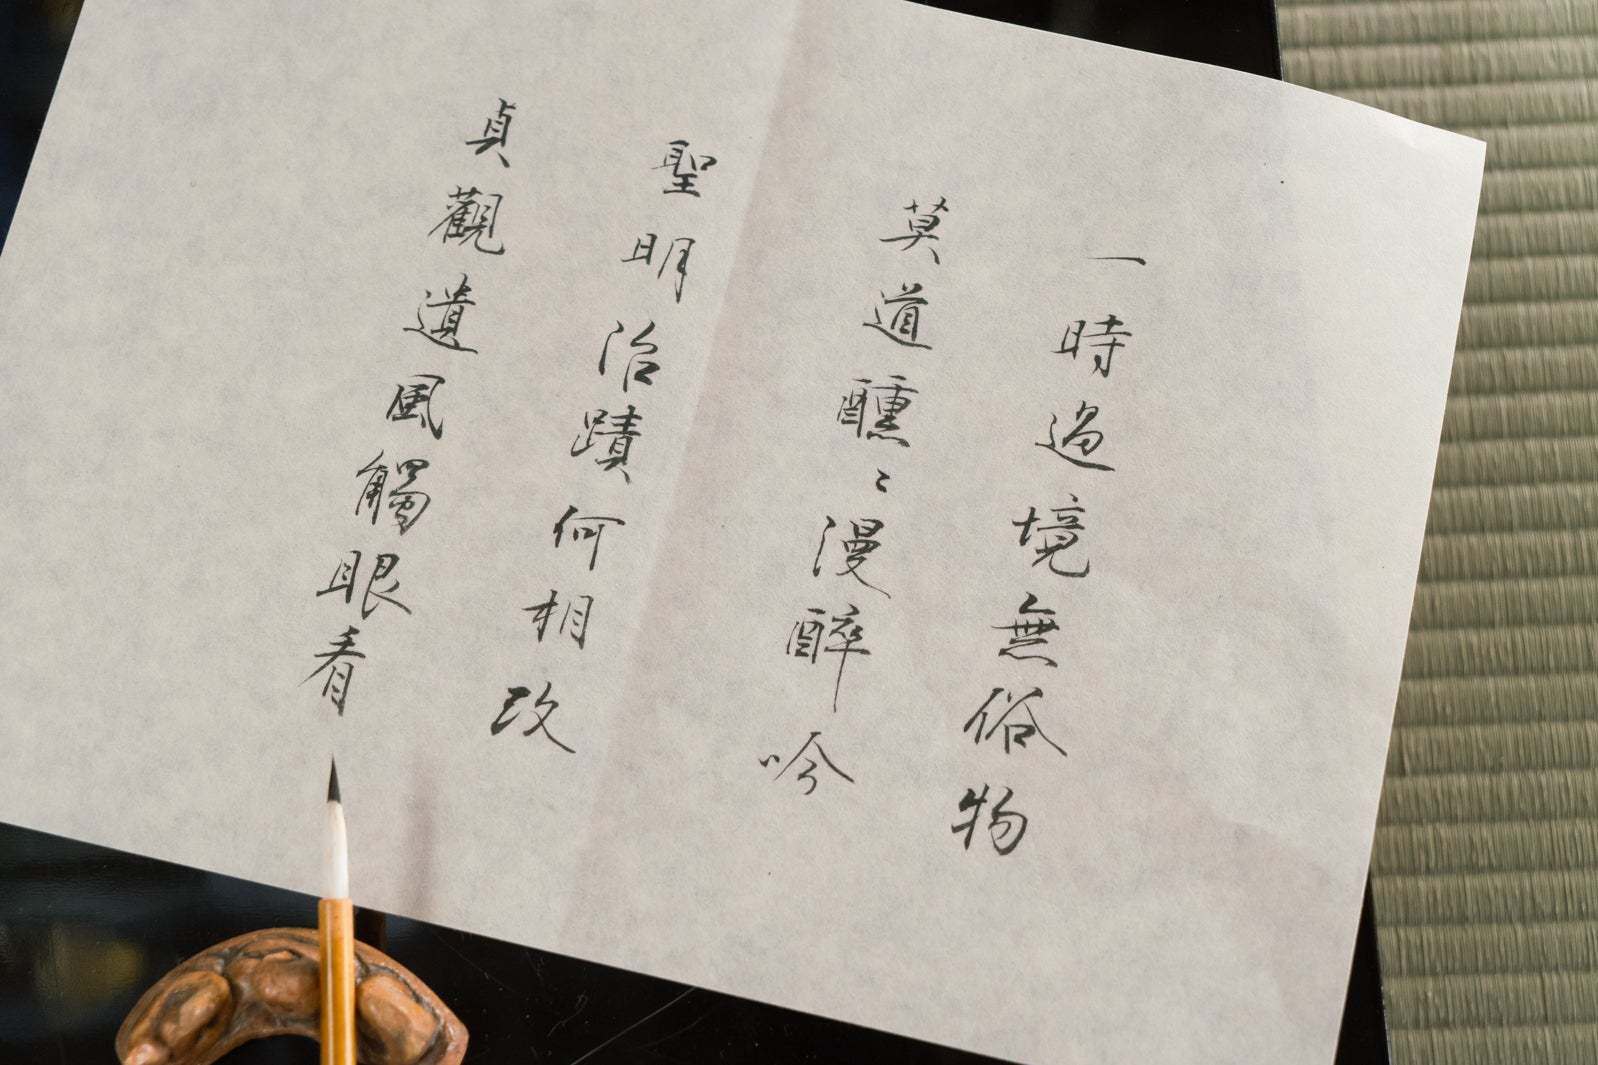 一時過境無俗物
莫道醺〻漫醉吟
聖明治蹟何相改
貞觀遺風觸眼看